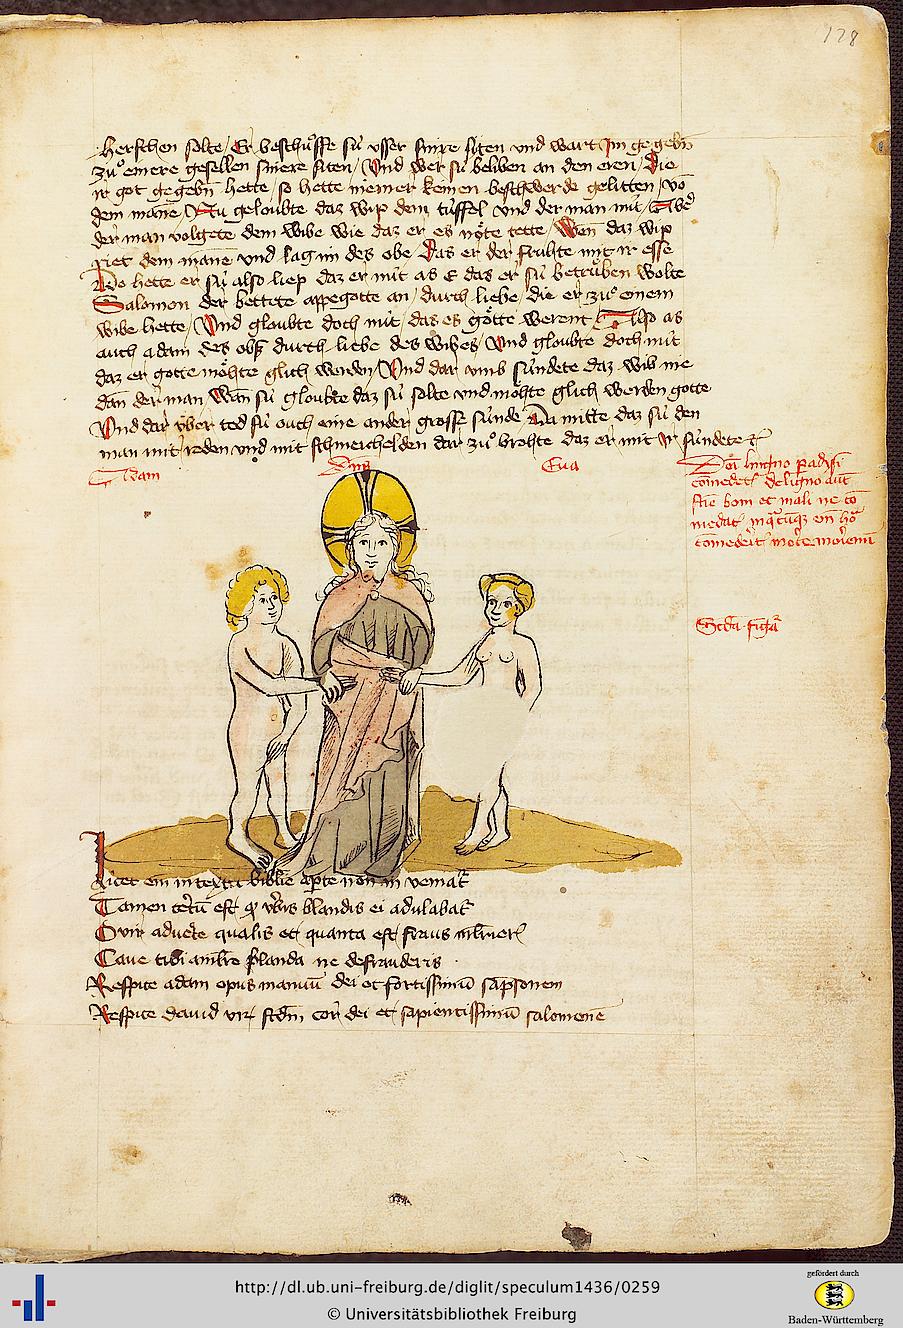 128
herschen solte / Er beschůffe sú usser sinre siten vnd wart im gegebn̄
zů einere gesellen sinere siten / Vnd wer sú beliben an den eren / Die
ir got gegebn̄ hette / so hette niemer keinen beschwerde gelitten / võ
dem manne / Nu geloubte daz wip dem túffel vnd der man nit / Abeꝰ
der man volgete dem wibe wie daz er es nöte tette / Wen daz wip
riet dem manne vnd lag im des obe / Das er der fruhte mit ir esse
Do hette er sú also liep daz er mit as das er sú betrüben wolte
Salomon der bettete appegotte an / durch liebe / die er zů einem
wibe hette / Vnd gloubte doch nit / das es götte werent / Also as
ouch adam des obß durch liebe des wibes / Vnd gloubte doch nit
daz er gotte möhte glich werden / Vnd dar vmb súndete daz wib me
dan̄ der man / Wan sú gloubte daz sú solte vnd möhte glich werden gotte
Vnd dar v́ber ted sú ouch eine ander grosse súnde Da mitte daz sú den
man mit reden vnd mit schmeichelden dar zů brohte daz er mit ir súndete
Adam
Dns
Eua
comedet de ligno aut
stie boni et mali ne co
comederit morte
Scda figa
Licet em in textu biblie apte non in veniat̄
Tamen certū est ꝙ vbis blandis ei adulabat̄
O vir adverte qualis et quanta est fraus mlier
Caue tibi ab blanda ne defrauderis
Respice adam opus manuū dei et fortissimū sapsonem
Respice dauid vir scdm cor dei et sapientissimū salomone
http://dl.ub.uni-freiburg.de/diglit/speculum1436/0259
© Universitätsbibliothek Freiburg
gefördert durch
Baden-Württemberg